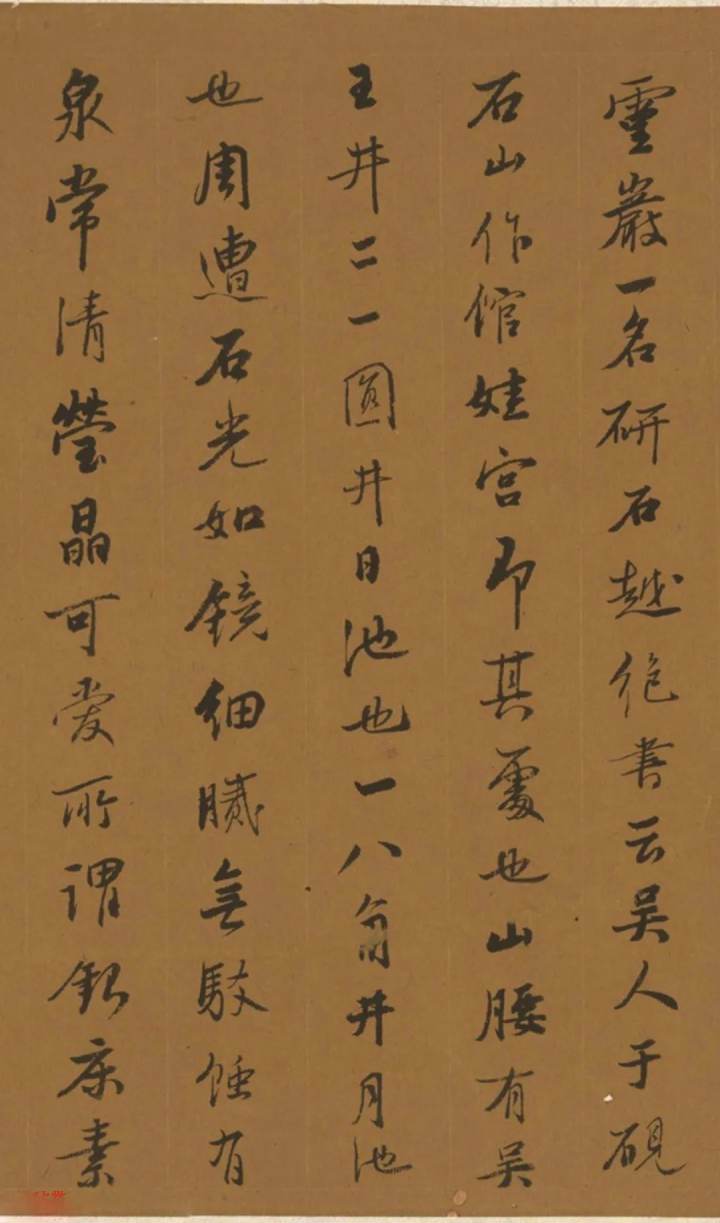 靈巖一名研石越絶書云吳人于硯
石山作館娃宮即其處也山腰有吳
王井二一圓井日池也一八角井月池
也周遭石光如鏡細膩無駁蝕有
泉常清瑩晶可愛所謂銀床素